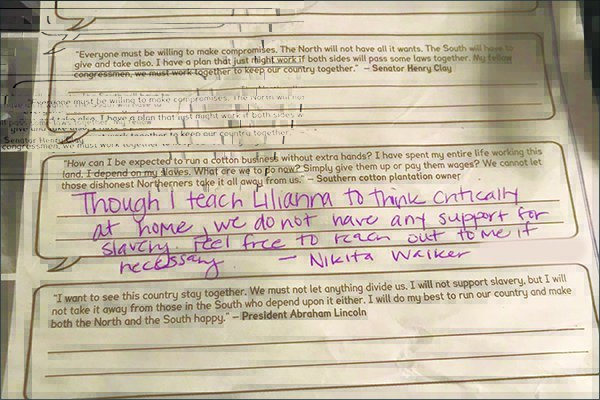 "Everyone must be willing to make compromises. The North will not have all it wants. The South will have to
give and take also. I have a plan that just might work if both sides will pass some laws together. My fellow
congressmen, we must work together to keep our country together." – Senator Henry Clay
everyone must be willing to make compromises. The North will not
give and take also. I have a plan that just might work if both sides w
congressmen, we must work together to keep our country together.
Senator Henry Clay
"How can I be expected to run a cotton business without extra hands? I have spent my entire life working this
land. I depend on my slaves. What are we to do now? Simply give them up or pay them wages? We cannot let
those dishonest Northerners take it all away from us." – Southern cotton plantation owner
Though I teach Lilianna to think critically
at home, we do not have any support for
slavery. Feel free to reach out to me if
necessary – Nikita Walker
"I want to see this country stay together. We must not let anything divide us. I will not support slavery, but I will
not take it away from those in the South who depend upon it either. I will do my best to run our country and make
both the North and the South happy." – President Abraham Lincoln